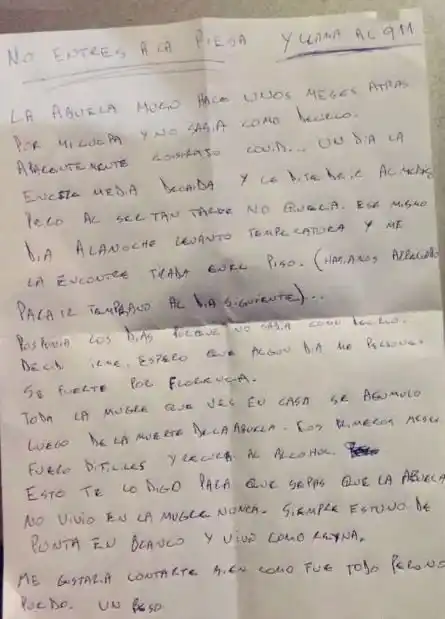 NO ENTRES A LA PIEZA Y LLAMA AL 911
LA ABUELA MURIO HACE UNOS MESES ATRAS
POR MI CULPA Y NO SABIA COMO DECIRLO.
APARENTEMENTE CONTRAJO COVID... UN DIA LA
ENCONTRE MEDIA DECAIDA Y LE DIJE DE IR AL MEDICO
PERO AL SER TAN TARDE NO QUERIA. ESE MISMO
DIA A LA NOCHE LEVANTO TEMPERATURA Y ME
LA ENCONTRE TIRADA EN EL PISO. (HABIAMOS ARREGLADO
PARA IR TEMPRANO AL DIA SIGUIENTE)...
POSPONIA LOS DIAS PORQUE NO SABIA COMO DECIRLO.
DECIDI IRME, ESPERO QUE ALGUN DIA ME PERDONE.
SE FUERTE POR FLORENCIA.
TODA LA MUGRE QUE VES EN CASA SE ACUMULO
LUEGO DE LA MUERTE DE LA ABUELA. LOS PRIMEROS MESES
FUERON DIFICILES Y RECURRI AL ALCOHOL.
ESTO TE LO DIGO PARA QUE SEPAS QUE LA ABUELA
NO VIVIO EN LA MUGRE NUNCA. SIEMPRE ESTUVO DE
PUNTA EN BLANCO Y VIVIO COMO REYNA.
ME GUSTARIA CONTARTE BIEN COMO FUE TODO PERO NO
PUEDO. UN BESO